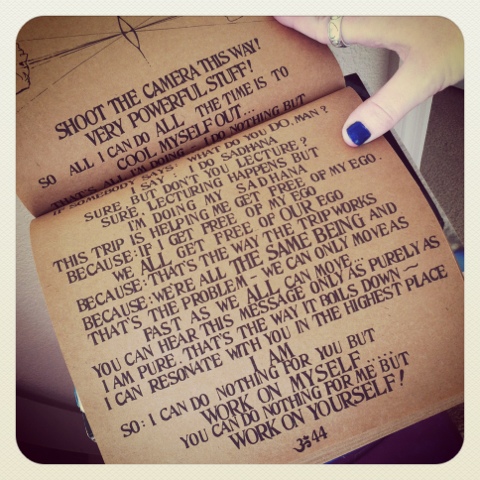 SHOOT THE CAMERA THIS WAY!
VERY POWERFUL STUFF!
SO ALL I CAN DO ALL THE TIME IS TO
COOL MYSELF OUT...
THAT'S ALL I'M DOING - I DO NOTHING BUT
IF SOMEBODY SAYS: WHAT DO YOU DO, MAN?
I SAY: I DO SADHANA
SURE BUT DON'T YOU LECTURE?
SURE, LECTURING HAPPENS BUT
I'M DOING MY SADHANA
THIS TRIP IS HELPING ME GET FREE OF MY EGO.
BECAUSE: IF I GET FREE OF MY EGO
WE ALL GET FREE OF OUR EGO
BECAUSE: THAT'S THE WAY THE TRIP WORKS
BECAUSE: WE'RE ALL THE SAME BEING AND
THAT'S THE PROBLEM - WE CAN ONLY MOVE AS
FAST AS WE ALL CAN MOVE...
YOU CAN HEAR THIS MESSAGE ONLY AS PURELY AS
I AM PURE. THAT'S THE WAY IT BOILS DOWN ~
I CAN RESONATE WITH YOU IN THE HIGHEST PLACE
I AM
SO: I CAN DO NOTHING FOR YOU BUT
WORK ON MYSELF .....
YOU CAN DO NOTHING FOR ME BUT
WORK ON YOURSELF!
ॐ 44